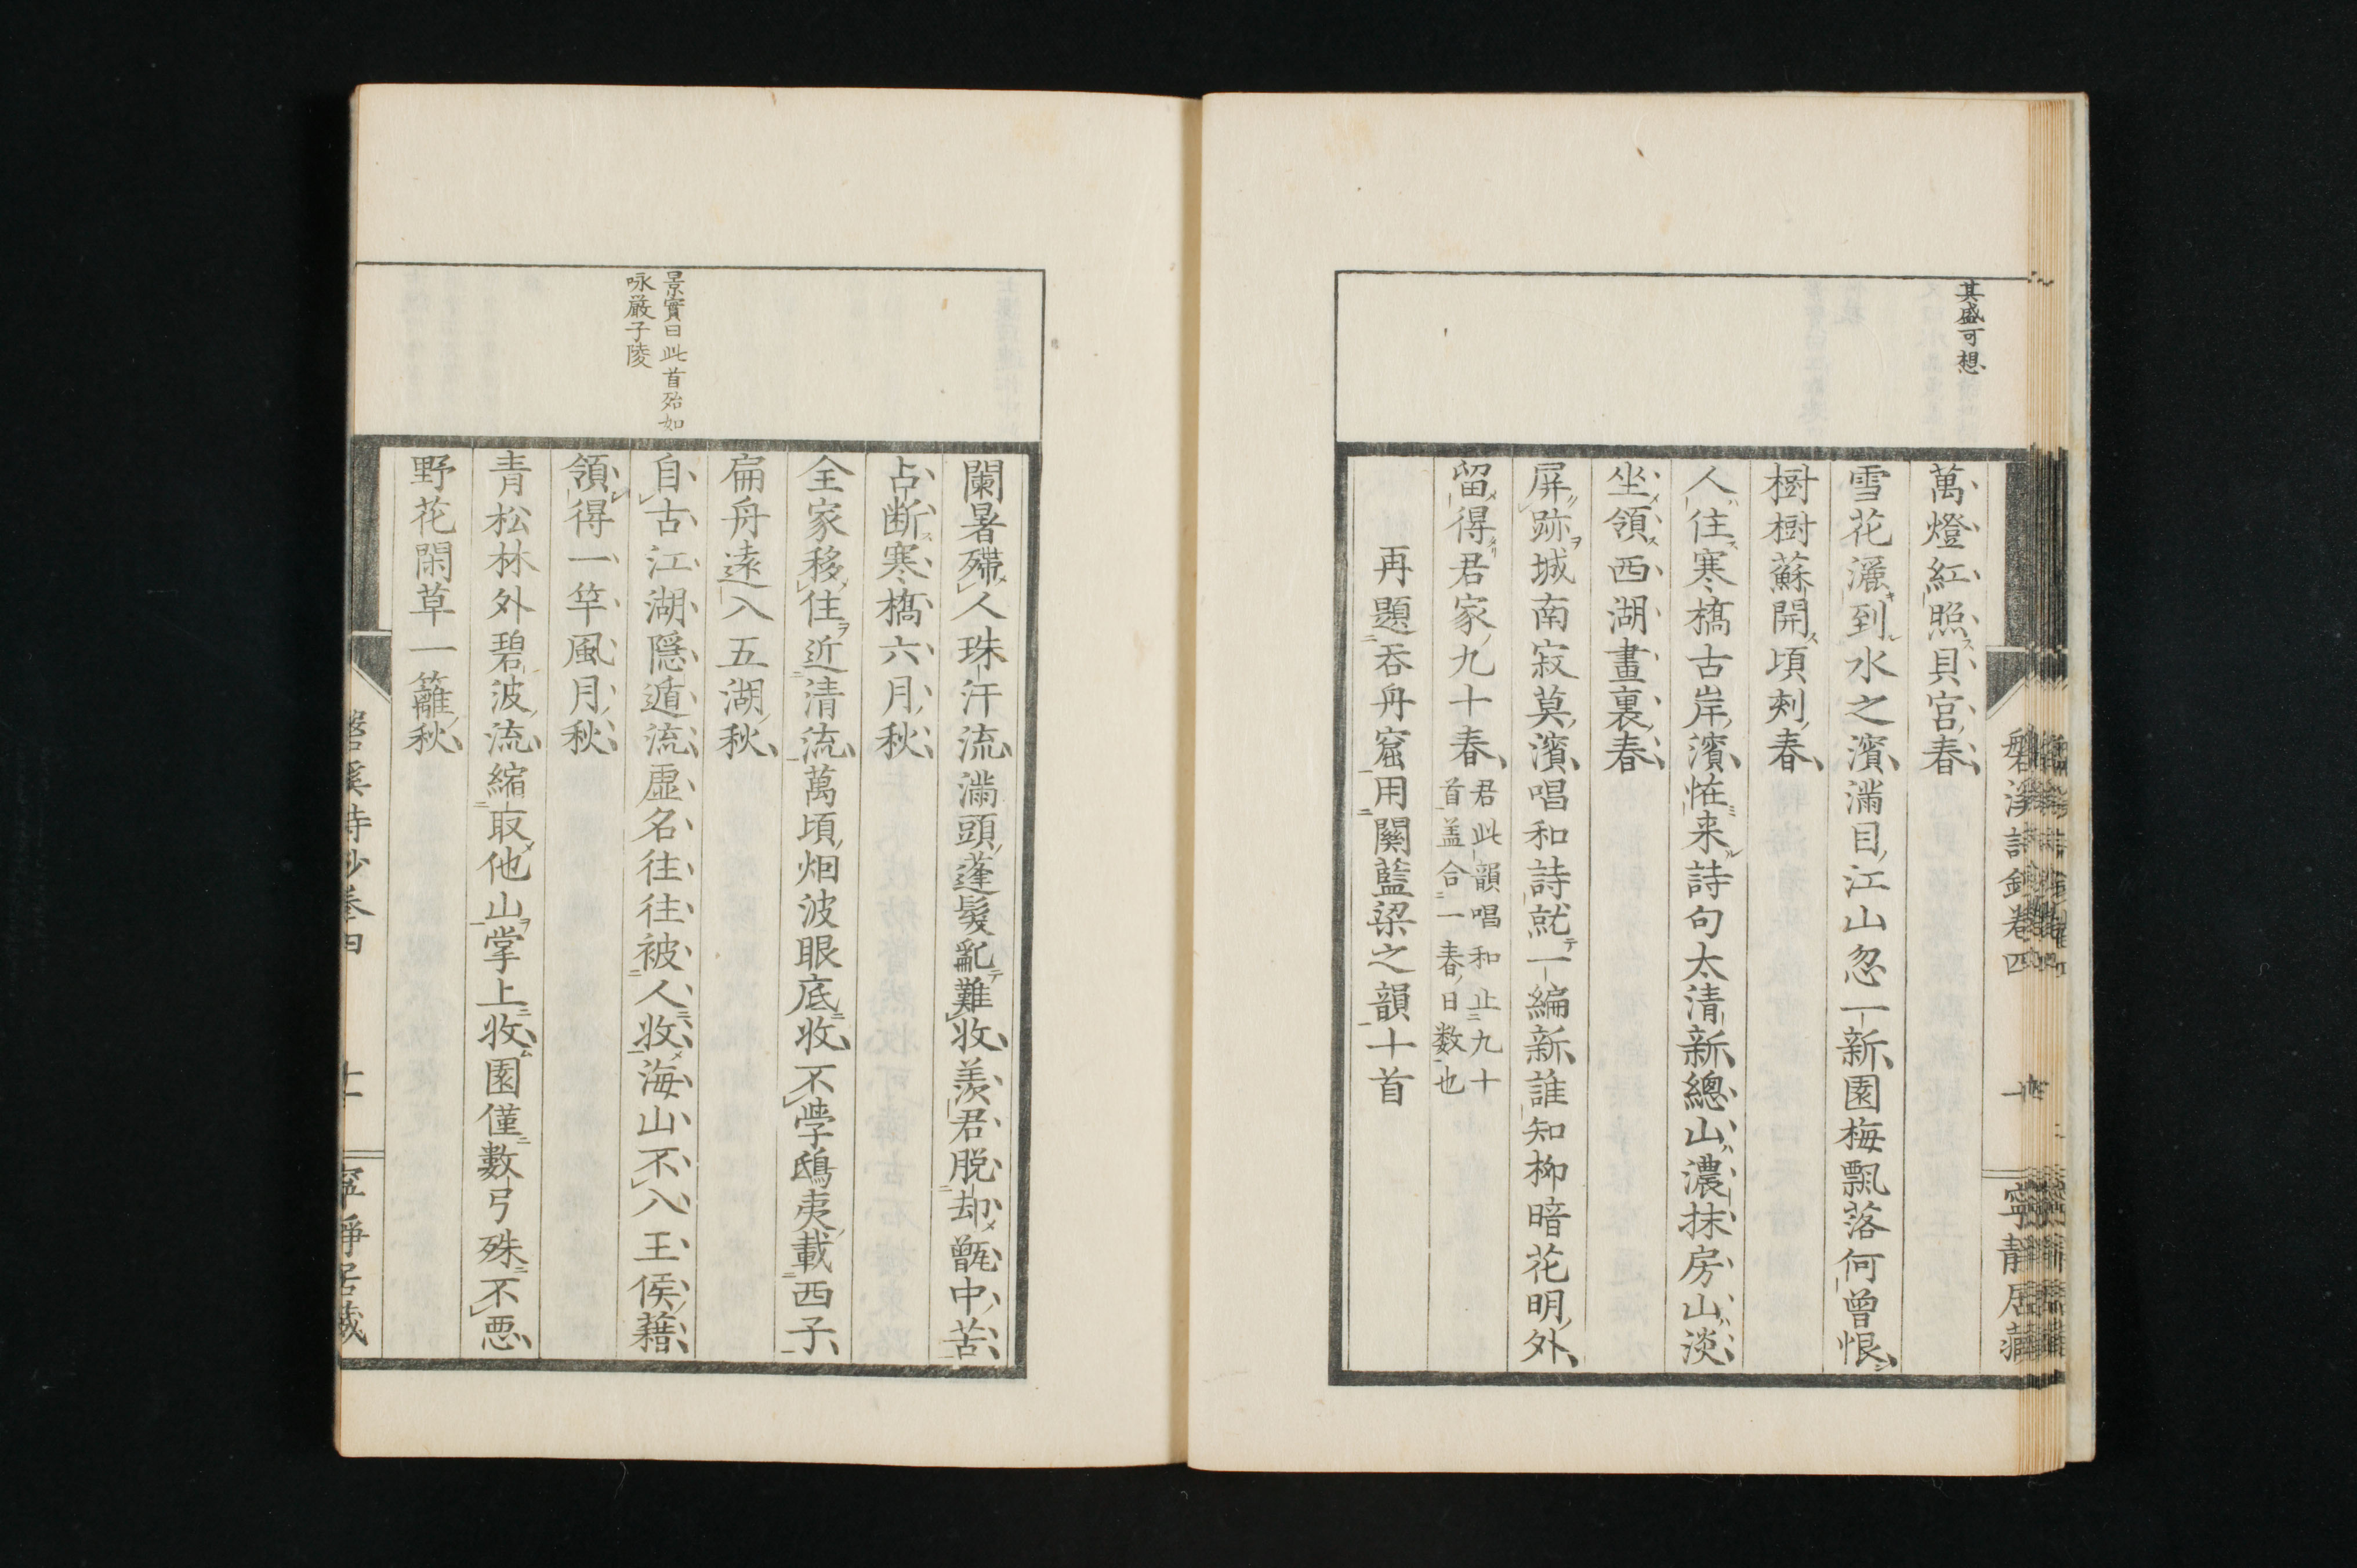 其盛可想
磐溪詩鈔卷四
寧靜居藏
萬燈紅照貝宮春
雪花灑到水之濱滿目江山忽一新園梅飄落何曾恨
樹樹蘇開頃刻春
人住寒橋古岸濱恠来詩句太清新總山濃抹房山淡
坐領西湖畫裏春
屏跡城南寂莫濱唱和詩就一編新誰知柳暗花明外
留得君家九十春
君此韻唱和止九十
首盖合一春日数也
再題呑舟窟用關藍梁之韻十首
景實曰此首殆如
咏嚴子陵
闌暑殢人珠汗流滿頭蓬髮亂難收羨君脱却甑中苦
占断寒橋六月秋
全家移住近清流萬頃烟波眼底收不學鴟夷載西子
扁舟遠入五湖秋
自古江湖隱遁流虛名往往被人收海山不入王侯藉
領得一竿風月秋
青松林外碧波流縮取他山掌上收園僅數弓殊不悪
野花閑草一籬秋
磐溪詩鈔卷四
寧靜居藏